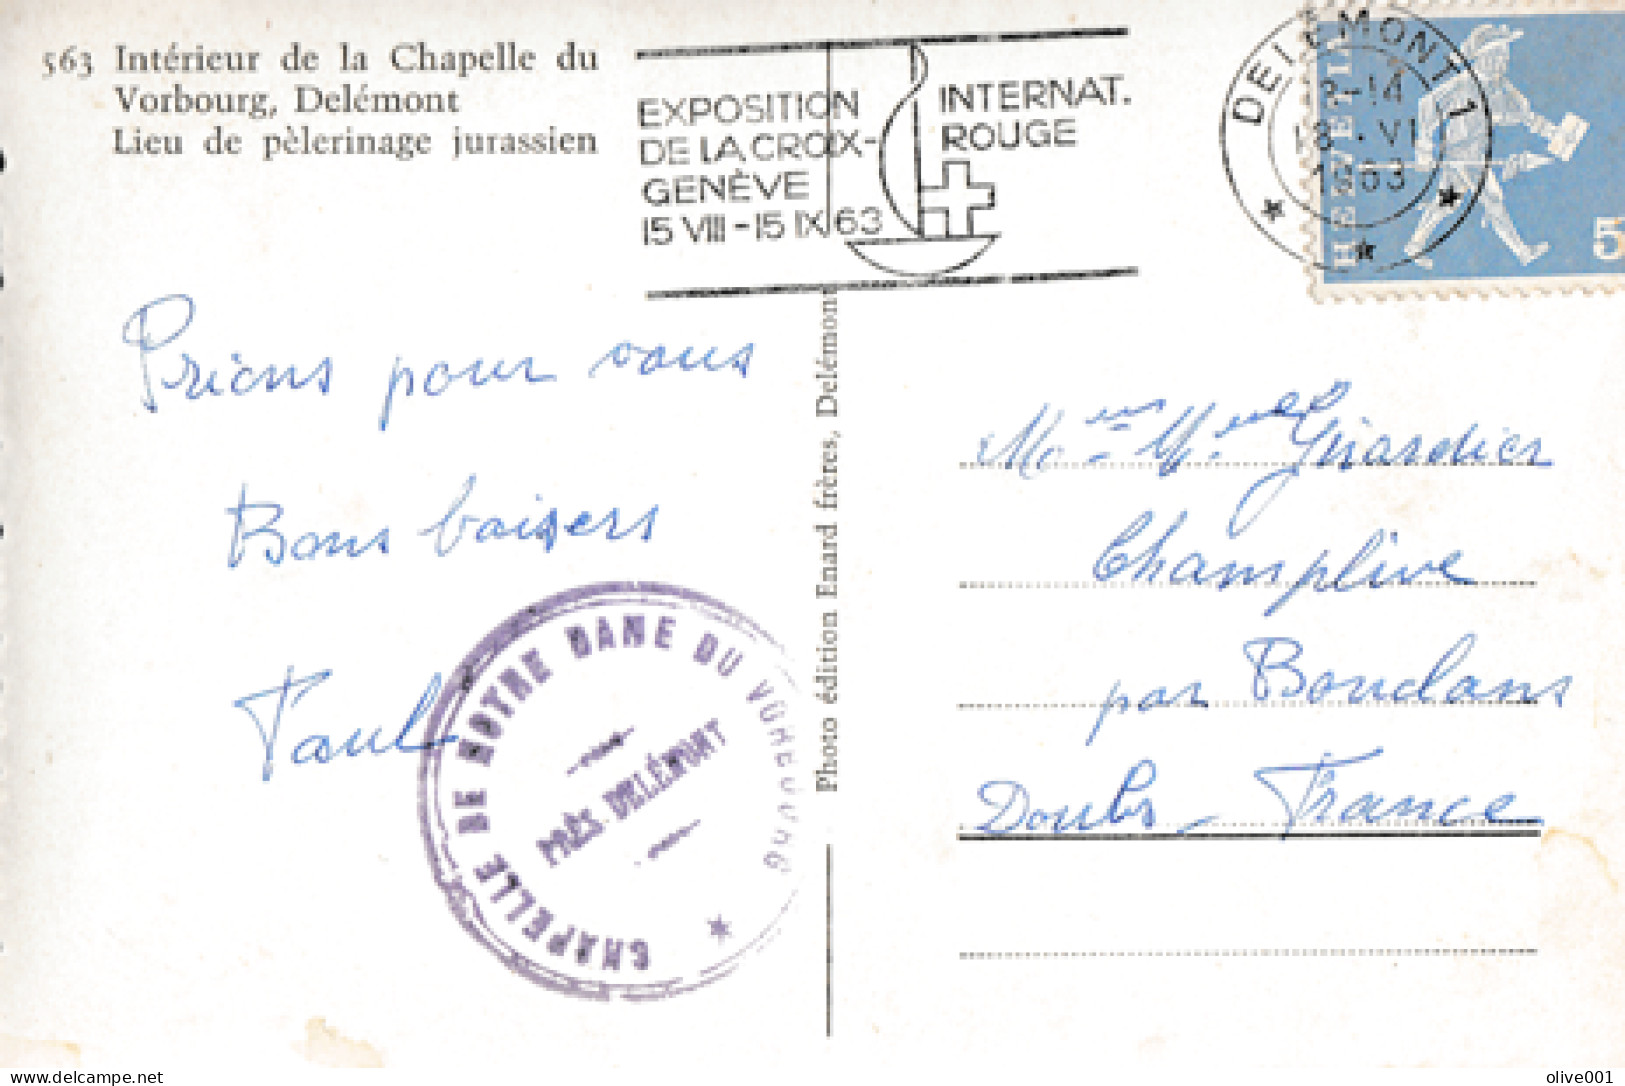 563 Intérieur de la Chapelle du
Vorbourg, Delémont
Lieu de pèlerinage jurassien
EXPOSITION INTERNAT.
DE LA CROIX-ROUGE
GENÈVE
15 VIII - 15 IX 63
DELÉMONT 1
-14
18. VI
1963
HELVETIA
5
Prions pour vous
Bons baisers
Paul
CHAPELLE DE NOTRE DAME DU VORBOURG
PRÈS DELÉMONT
Photo édition Enard frères, Delémont
Girardier
Champlive
par Bouclans
Doubs - France
delcampe.net
olive001